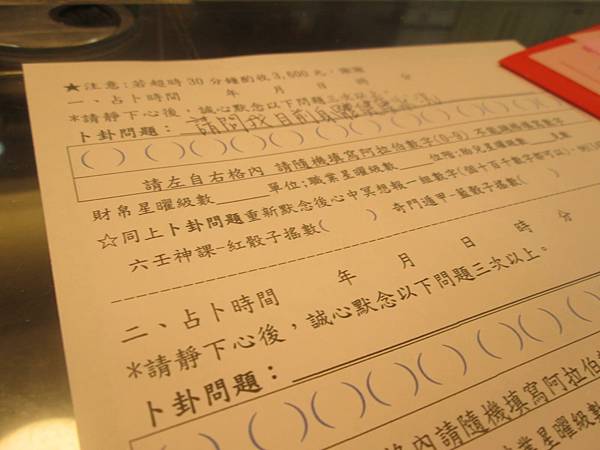 ★注意:若超時30分鐘酌收3,600元,謝謝
一、占卜時間 年 月 日 時 分
*請靜下心後,誠心默念以下問題三次以上。
卜卦問題: 請問我目前
( ) ( ) ( ) ( ) ( ) ( ) ( ) ( ) ( )
請左自右格內 請隨機填寫阿拉伯數字(0-9)
財帛星曜級數 單位;職業星曜級數
☆同上卜卦問題重新默念後心中冥想報一組數字(個十百千數字都可以)
六壬神課-紅骰子搖數( ) 奇門遁甲-藍骰子搖數( )
二、占卜時間 年 月 日 時 分
*請靜下心後,誠心默念以下問題三次以上。
卜卦問題:
( ) ( ) ( ) ( ) ( ) ( ) ( )
格內請隨機填寫阿拉伯
業星曜級數